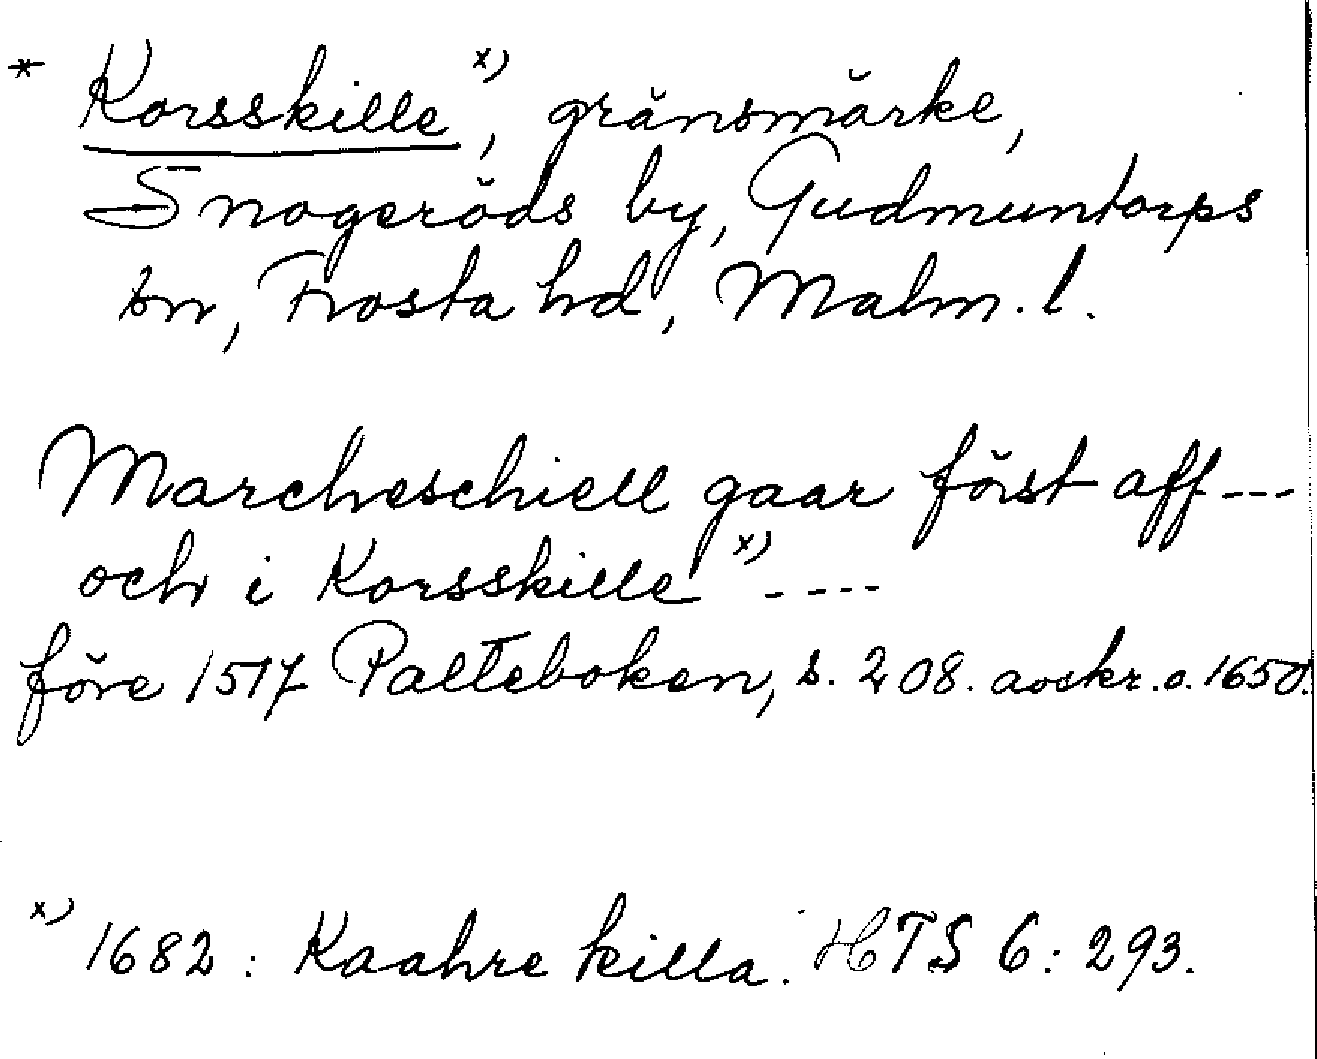 * Korsskille x), gränsmärke,
Snogeröds by, Gudmuntorps
sn, Frosta hd, Malm. l.
Marcheschiell gaar först aff ---
och i Korsskille x) ----
före 1517 Palteboken, s. 208. avskr. o. 1650.
x) 1682: Kaahre killa. HTS 6: 293.